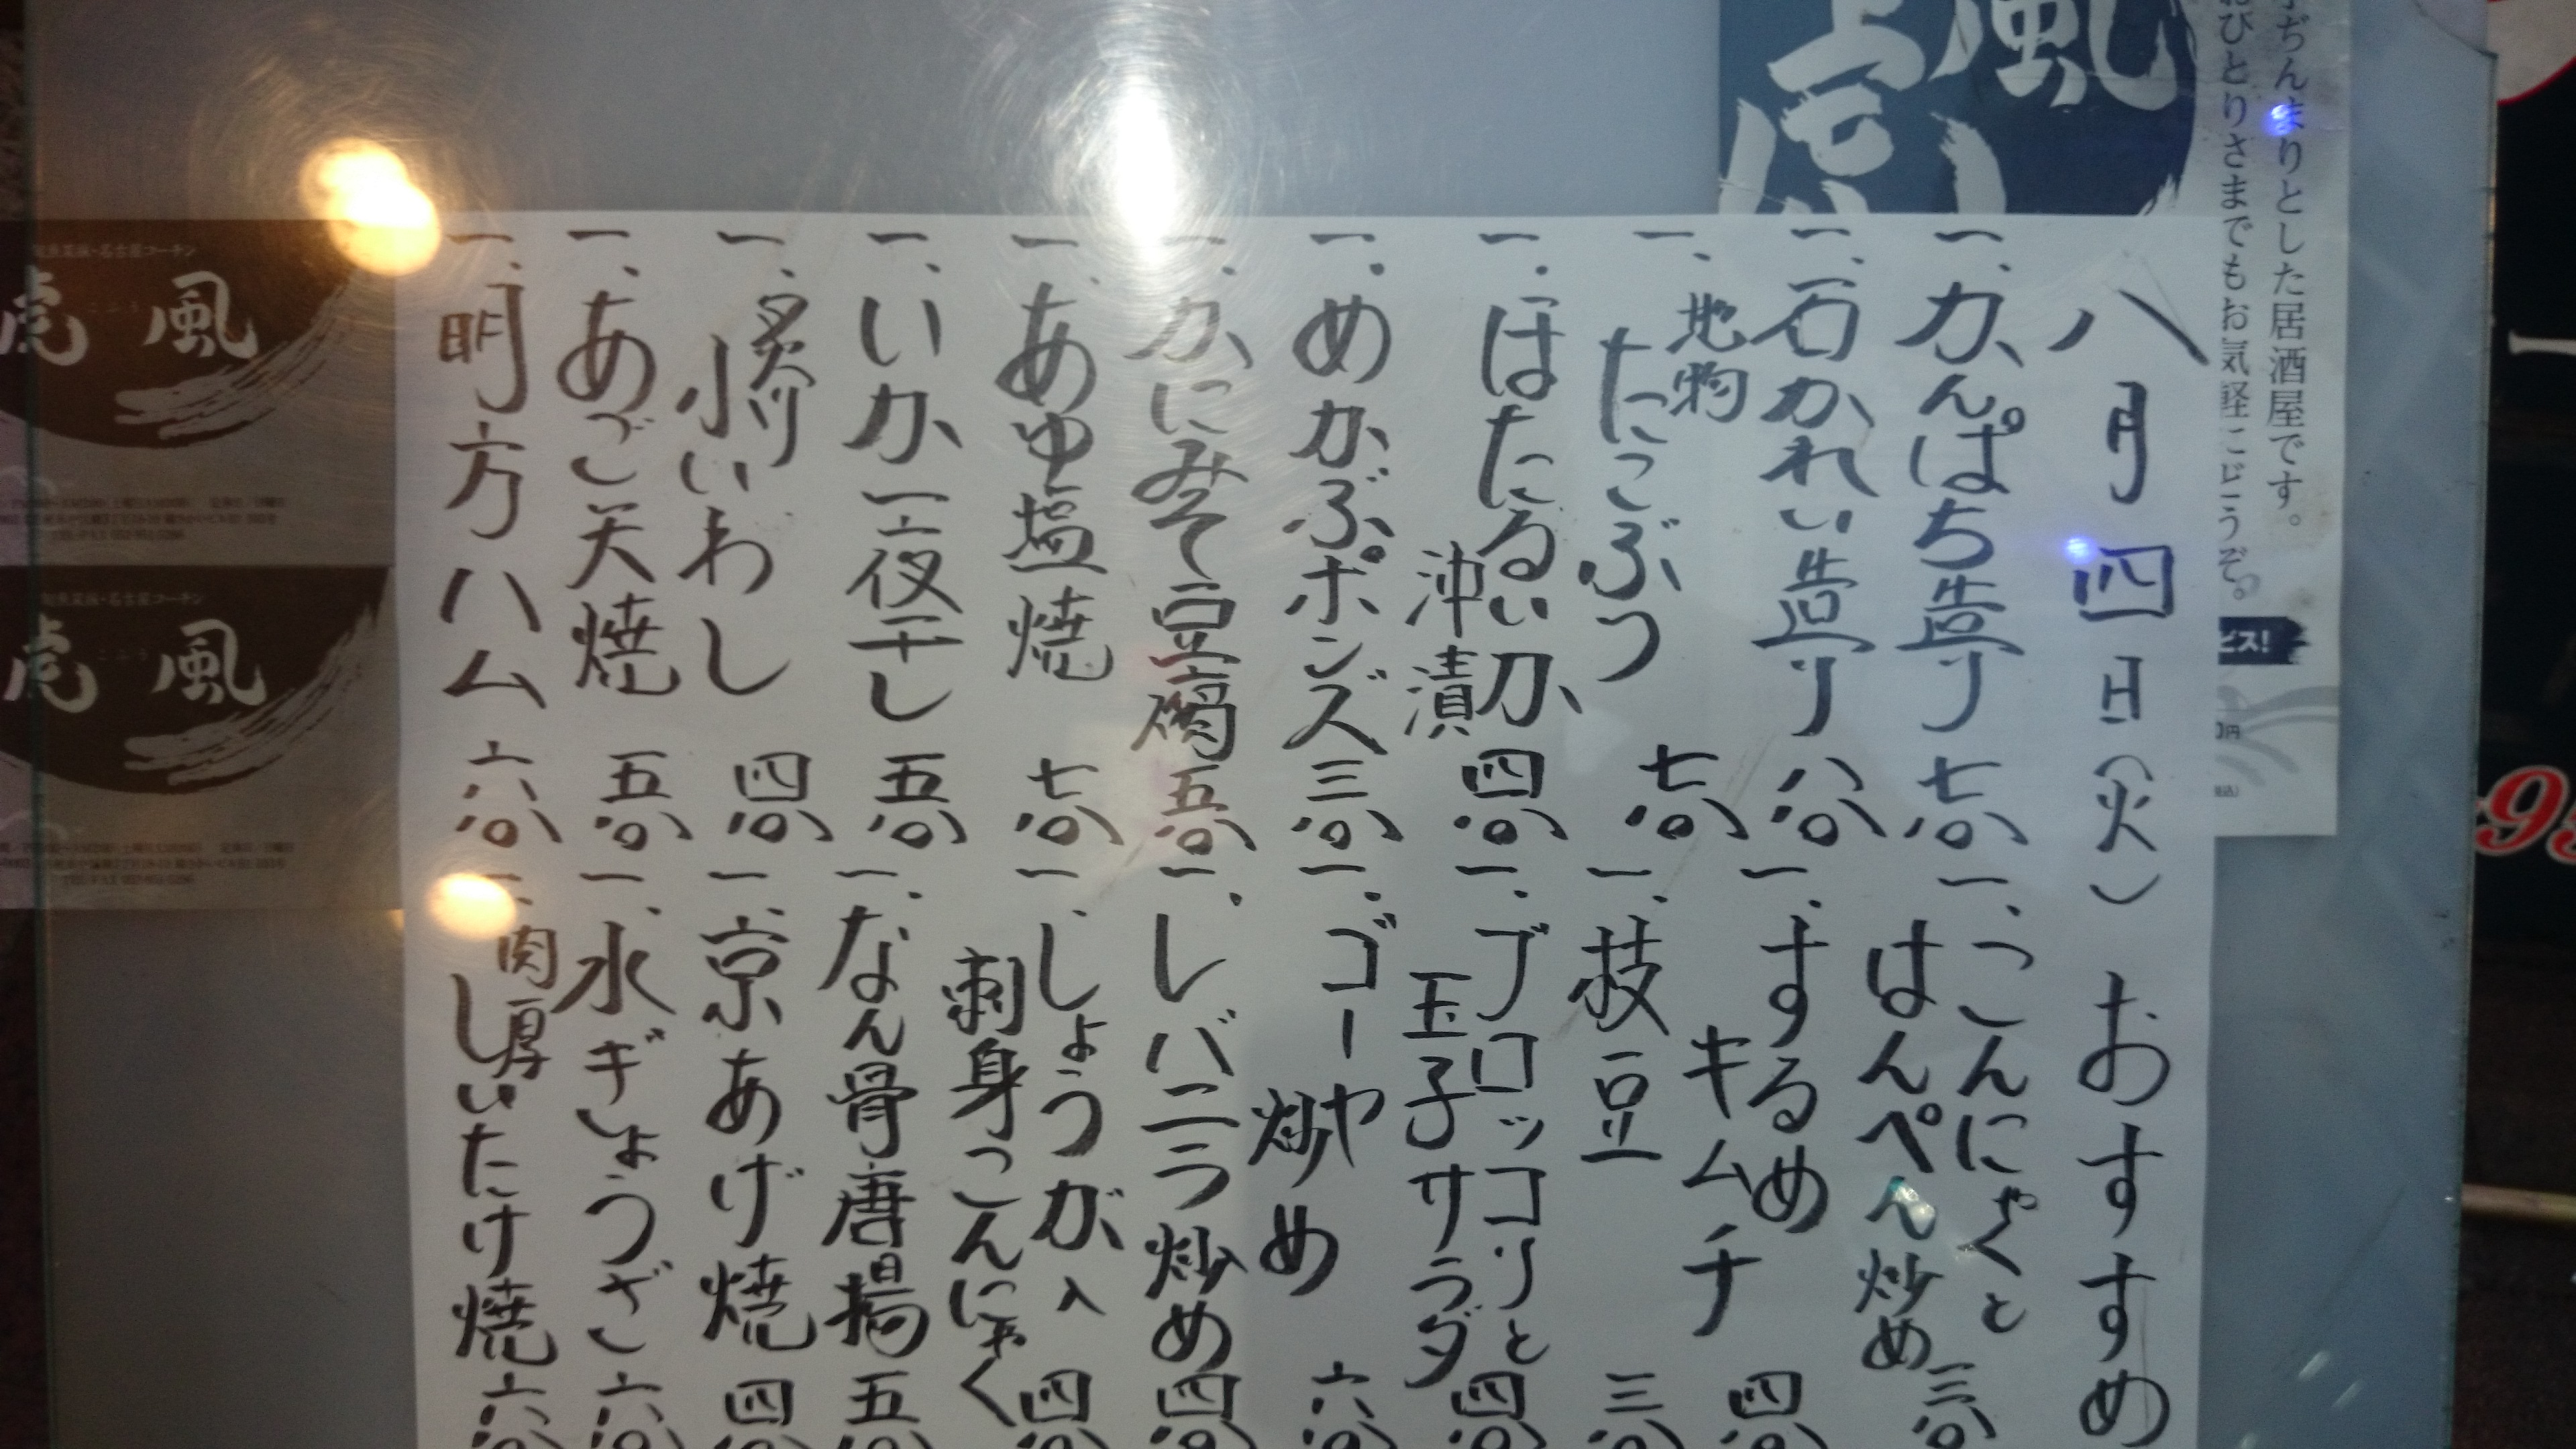 風
虎
ぢんまりとした居酒屋です。
おひとりさまでもお気軽にどうぞ。
ビス!
0円
八月四日(火) おすすめ
一、かんぱち造り 七〇〇
一、石かれい造り 八〇〇
一、地物たこぶつ 七〇〇
一、ほたるいか沖漬 四〇〇
一、めかぶポンズ 三〇〇
一、かにみそ豆腐 五〇〇
一、あゆ塩焼 七〇〇
一、いか一夜干し 五〇〇
一、炙り小いわし 四〇〇
一、あご天焼 五〇〇
一、明方ハム 六〇〇
一、こんにゃくと
はんぺん炒め 三〇〇
一、するめ
キムチ 四〇〇
一、枝豆 三〇〇
一、ブロッコリと
玉子サラダ 四〇〇
一、ゴーヤ
炒め 六〇〇
一、レバニラ炒め 四〇〇
一、しょうが入
刺身こんにゃく 四〇〇
一、なん骨唐揚 五〇〇
一、京あげ焼 四〇〇
一、水ぎょうざ 六〇〇
一、肉厚しいたけ焼 六〇〇
名古屋コーチン
虎風
こふう
名古屋コーチン
虎風
こふう